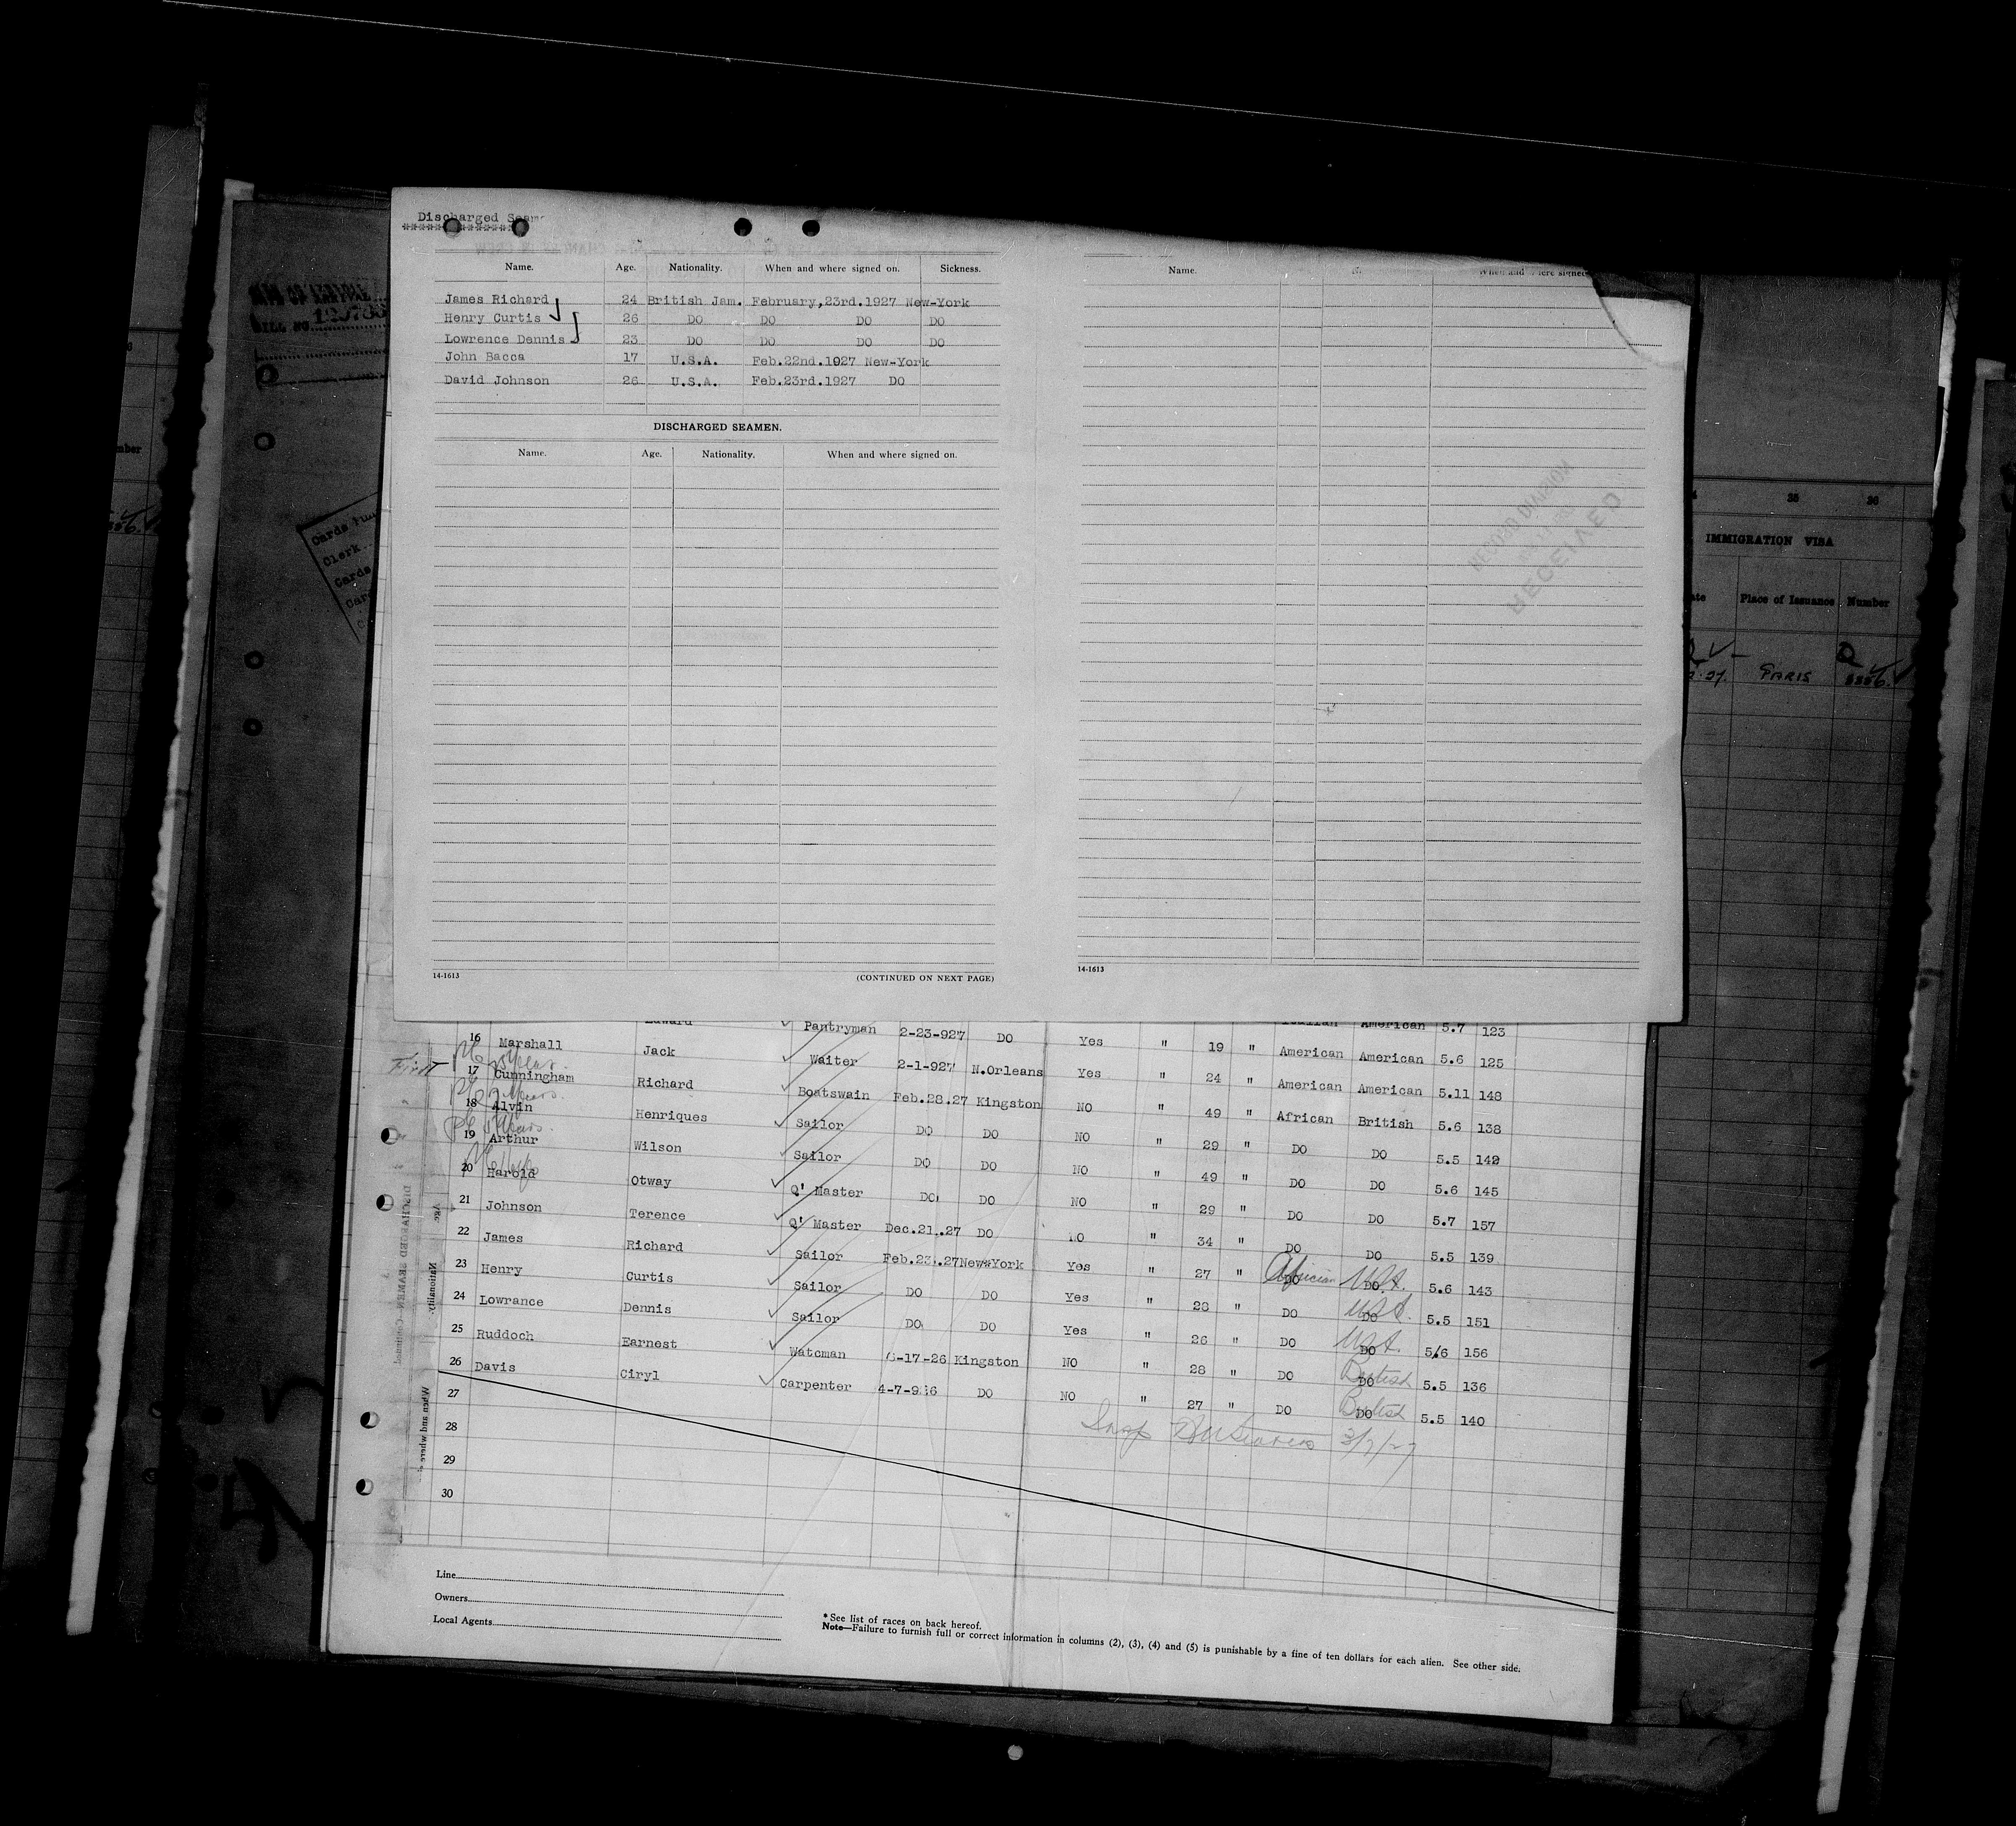 Discharged Seam
Name. Age. Nationality. When and where signed on. Sickness.
James Richard 24 British Jam. February,23rd.1927 New-York
Henry Curtis 26 DO DO DO DO
Lowrence Dennis 23 DO DO DO DO
John Bacca 17 U.S.A. Feb.22nd.1927 New-York
David Johnson 26 U.S.A. Feb.23rd.1927 DO
DISCHARGED SEAMEN.
Name. Age. Nationality. When and where signed on.
14-1613 (CONTINUED ON NEXT PAGE)
Name. When and where signed
RECORD DIVISION
RECEIVED
14-1613
Cards
Clerk
Cards
35 36
IMMIGRATION VISA
Place of Issuance Number
PARIS
Edward Pantryman 2-23-927 DO Yes " 19 " Italian American 5.7 123
16 Marshall Jack Waiter 2-1-927 N.Orleans Yes " 24 " American American 5.6 125
First
17 Cunningham Richard Boatswain Feb.28.27 Kingston NO " 49 " American American 5.11 148
18 Alvin Henriques Sailor DO DO NO " 29 " African British 5.6 138
19 Arthur Wilson Sailor DO DO NO " 49 " DO DO 5.5 142
20 Harold Otway Q' Master DO DO NO " 29 " DO DO 5.6 145
21 Johnson Terence Q' Master Dec.21.27 DO NO " 34 " DO DO 5.7 157
22 James Richard Sailor Feb.23.27 New-York Yes " 27 " DO DO 5.5 139
23 Henry Curtis Sailor DO DO Yes " 28 " African DO DO 5.6 143
24 Lowrance Dennis Sailor DO DO Yes " 26 " DO DO 5.5 151
25 Ruddoch Earnest Watcman 6-17-26 Kingston NO " 28 " DO DO 5/6 156
26 Davis Ciryl Carpenter 4-7-926 DO NO " 27 " DO British DO 5.5 136
27 DO British DO 5.5 140
28 3/7/27
29
30
Line
Owners
Local Agents
* See list of races on back hereof.
Note—Failure to furnish full or correct information in columns (2), (3), (4) and (5) is punishable by a fine of ten dollars for each alien. See other side.